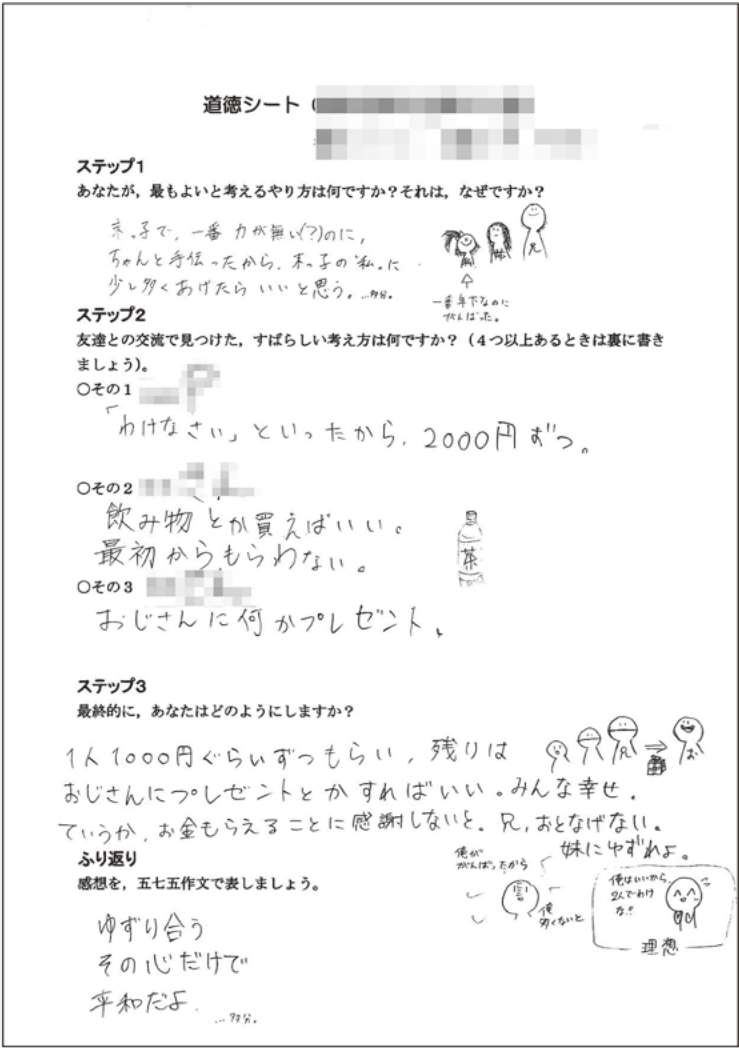 道徳シート（
ステップ1
あなたが，最もよいと考えるやり方は何ですか？それは，なぜですか？
末っ子で、一番 力が無い(?)のに，
ちゃんと手伝ったから，末っ子の"私"に
少し多くあげたら いいと思う。…多分。
兄
一番年下なのに
がんばった。
ステップ2
友達との交流で見つけた，すばらしい考え方は何ですか？（４つ以上あるときは裏に書き
ましょう）。
○その１
「わけなさい」といったから，2000円ずつ。
○その２
飲み物とか買えばいい。
最初からもらわない。
茶
○その３
おじさんに何かプレゼント、
ステップ3
最終的に，あなたはどのようにしますか？
1人1000円ぐらいずつもらい，残りは
兄
お
おじさんにプレゼントとかすればいい。みんな幸せ．
ていうか，お金もらえることに感謝しないと。兄，おとなげない。
妹にゆずれよ。
ふり返り
感想を，五七五作文で表しましょう。
俺が
がんばったから
俺
多くないと
俺はいいから，
2人でわけ
な!!
理想
ゆずり合う
その心だけで
平和だよ．
…多分。